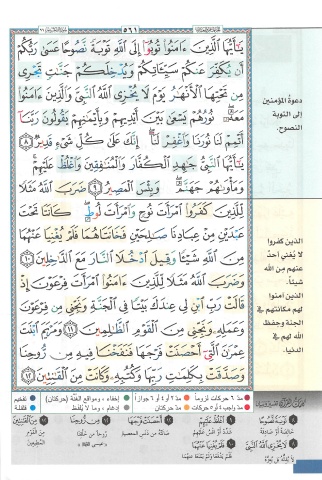 ٥٦١
يَـٰٓأَيُّهَا ٱلَّذِينَ ءَامَنُوا۟ تُوبُوٓا۟ إِلَى ٱللَّهِ تَوْبَةً نَّصُوحًا عَسَىٰ رَبُّكُمْ
أَن يُكَفِّرَ عَنكُمْ سَيِّـَٔاتِكُمْ وَيُدْخِلَكُمْ جَنَّـٰتٍ تَجْرِى
مِن تَحْتِهَا ٱلْأَنْهَـٰرُ يَوْمَ لَا يُخْزِى ٱللَّهُ ٱلنَّبِىَّ وَٱلَّذِينَ ءَامَنُوا۟
مَعَهُۥ ۖ نُورُهُمْ يَسْعَىٰ بَيْنَ أَيْدِيهِمْ وَبِأَيْمَـٰنِهِمْ يَقُولُونَ رَبَّنَآ
أَتْمِمْ لَنَا نُورَنَا وَٱغْفِرْ لَنَآ ۖ إِنَّكَ عَلَىٰ كُلِّ شَىْءٍ قَدِيرٌ ٨
يَـٰٓأَيُّهَا ٱلنَّبِىُّ جَـٰهِدِ ٱلْكُفَّارَ وَٱلْمُنَـٰفِقِينَ وَٱغْلُظْ عَلَيْهِمْ ۚ
وَمَأْوَىٰهُمْ جَهَنَّمُ ۖ وَبِئْسَ ٱلْمَصِيرُ ٩ ضَرَبَ ٱللَّهُ مَثَلًا
لِّلَّذِينَ كَفَرُوا۟ ٱمْرَأَتَ نُوحٍ وَٱمْرَأَتَ لُوطٍ ۖ كَانَتَا تَحْتَ
عَبْدَيْنِ مِنْ عِبَادِنَا صَـٰلِحَيْنِ فَخَانَتَاهُمَا فَلَمْ يُغْنِيَا عَنْهُمَا
مِنَ ٱللَّهِ شَيْـًٔا وَقِيلَ ٱدْخُلَا ٱلنَّارَ مَعَ ٱلدَّٰخِلِينَ ١٠
وَضَرَبَ ٱللَّهُ مَثَلًا لِّلَّذِينَ ءَامَنُوا۟ ٱمْرَأَتَ فِرْعَوْنَ إِذْ
قَالَتْ رَبِّ ٱبْنِ لِى عِندَكَ بَيْتًا فِى ٱلْجَنَّةِ وَنَجِّنِى مِن فِرْعَوْنَ
وَعَمَلِهِۦ وَنَجِّنِى مِنَ ٱلْقَوْمِ ٱلظَّـٰلِمِينَ ١١ وَمَرْيَمَ ٱبْنَتَ
عِمْرَٰنَ ٱلَّتِىٓ أَحْصَنَتْ فَرْجَهَا فَنَفَخْنَا فِيهِ مِن رُّوحِنَا
وَصَدَّقَتْ بِكَلِمَـٰتِ رَبِّهَا وَكُتُبِهِۦ وَكَانَتْ مِنَ ٱلْقَـٰنِتِينَ ١٢
دعوة المؤمنين
إلى التوبة
النصوح.
الذين كفروا
لا يغني أحدٌ
عنهم من الله
شيئاً.
الذين آمنوا
لهم مكانتهم في
الجنة وحفظ
الله لهم في
الدنيا.
مد ٦ حركات لزوماً
مد ٢ أو ٤ أو ٦ جوازاً
إخفاء، ومواقع الغنّة (حركتان)
تفخيم
مد واجب ٤ أو ٥ حركات
مد حركتان
إدغام، وما لا يلفظ
قلقلة